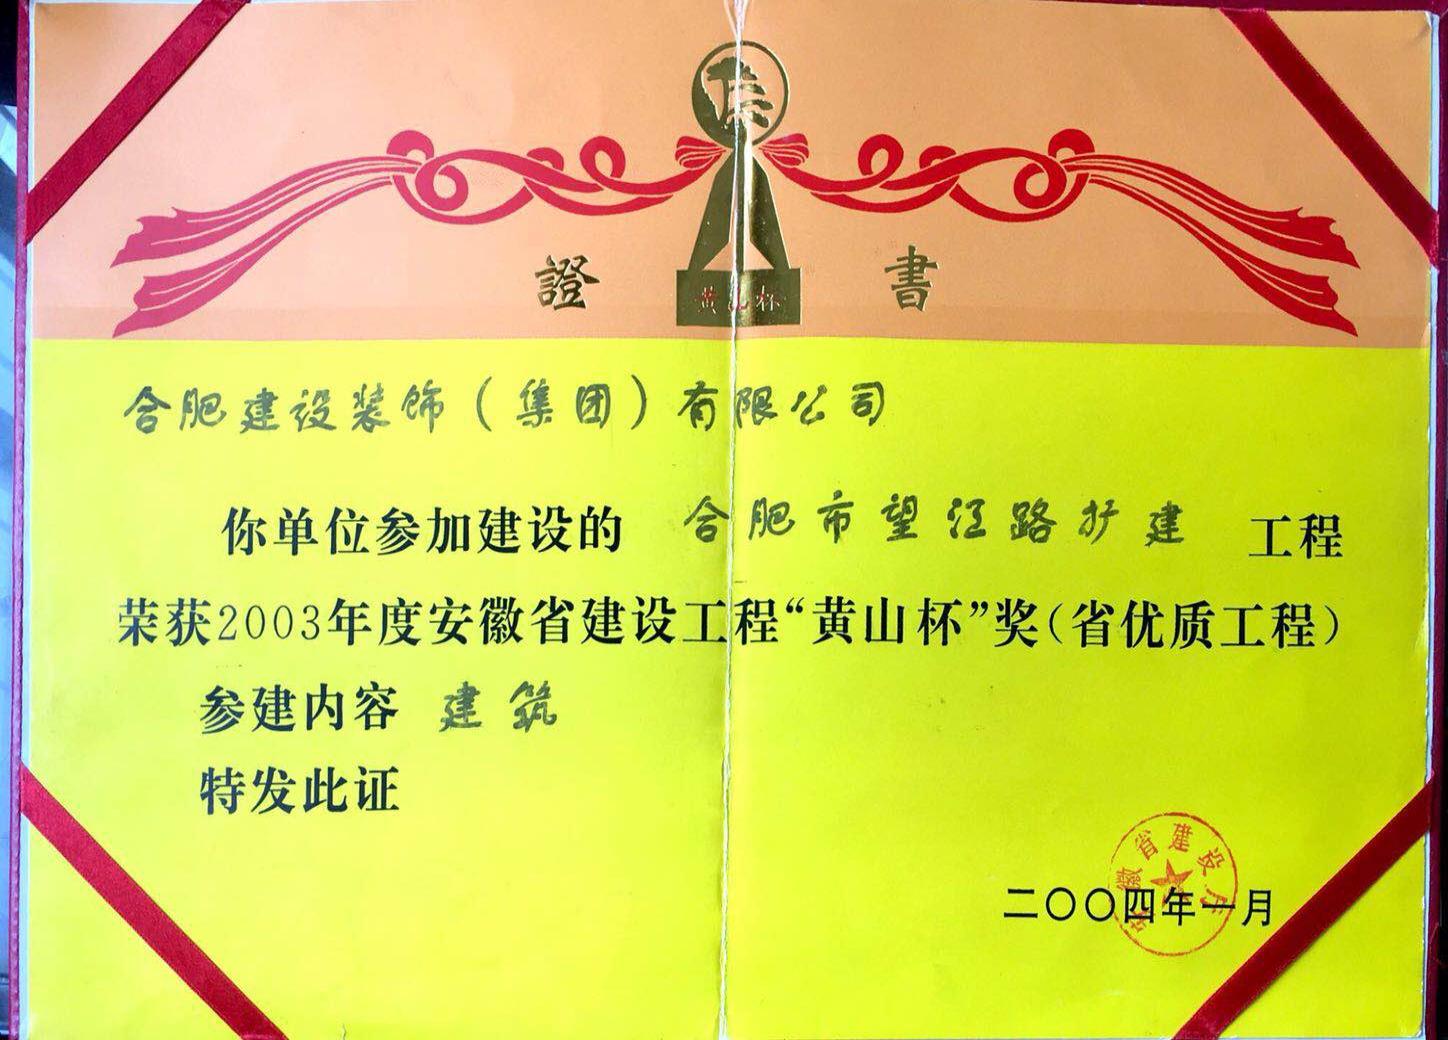 證 書
黄山杯
合肥建设装饰（集团）有限公司
你单位参加建设的 合肥市望江路扩建 工程
荣获2003年度安徽省建设工程“黄山杯”奖（省优质工程）
参建内容 建筑
特发此证
安徽省建设厅
二〇〇四年一月